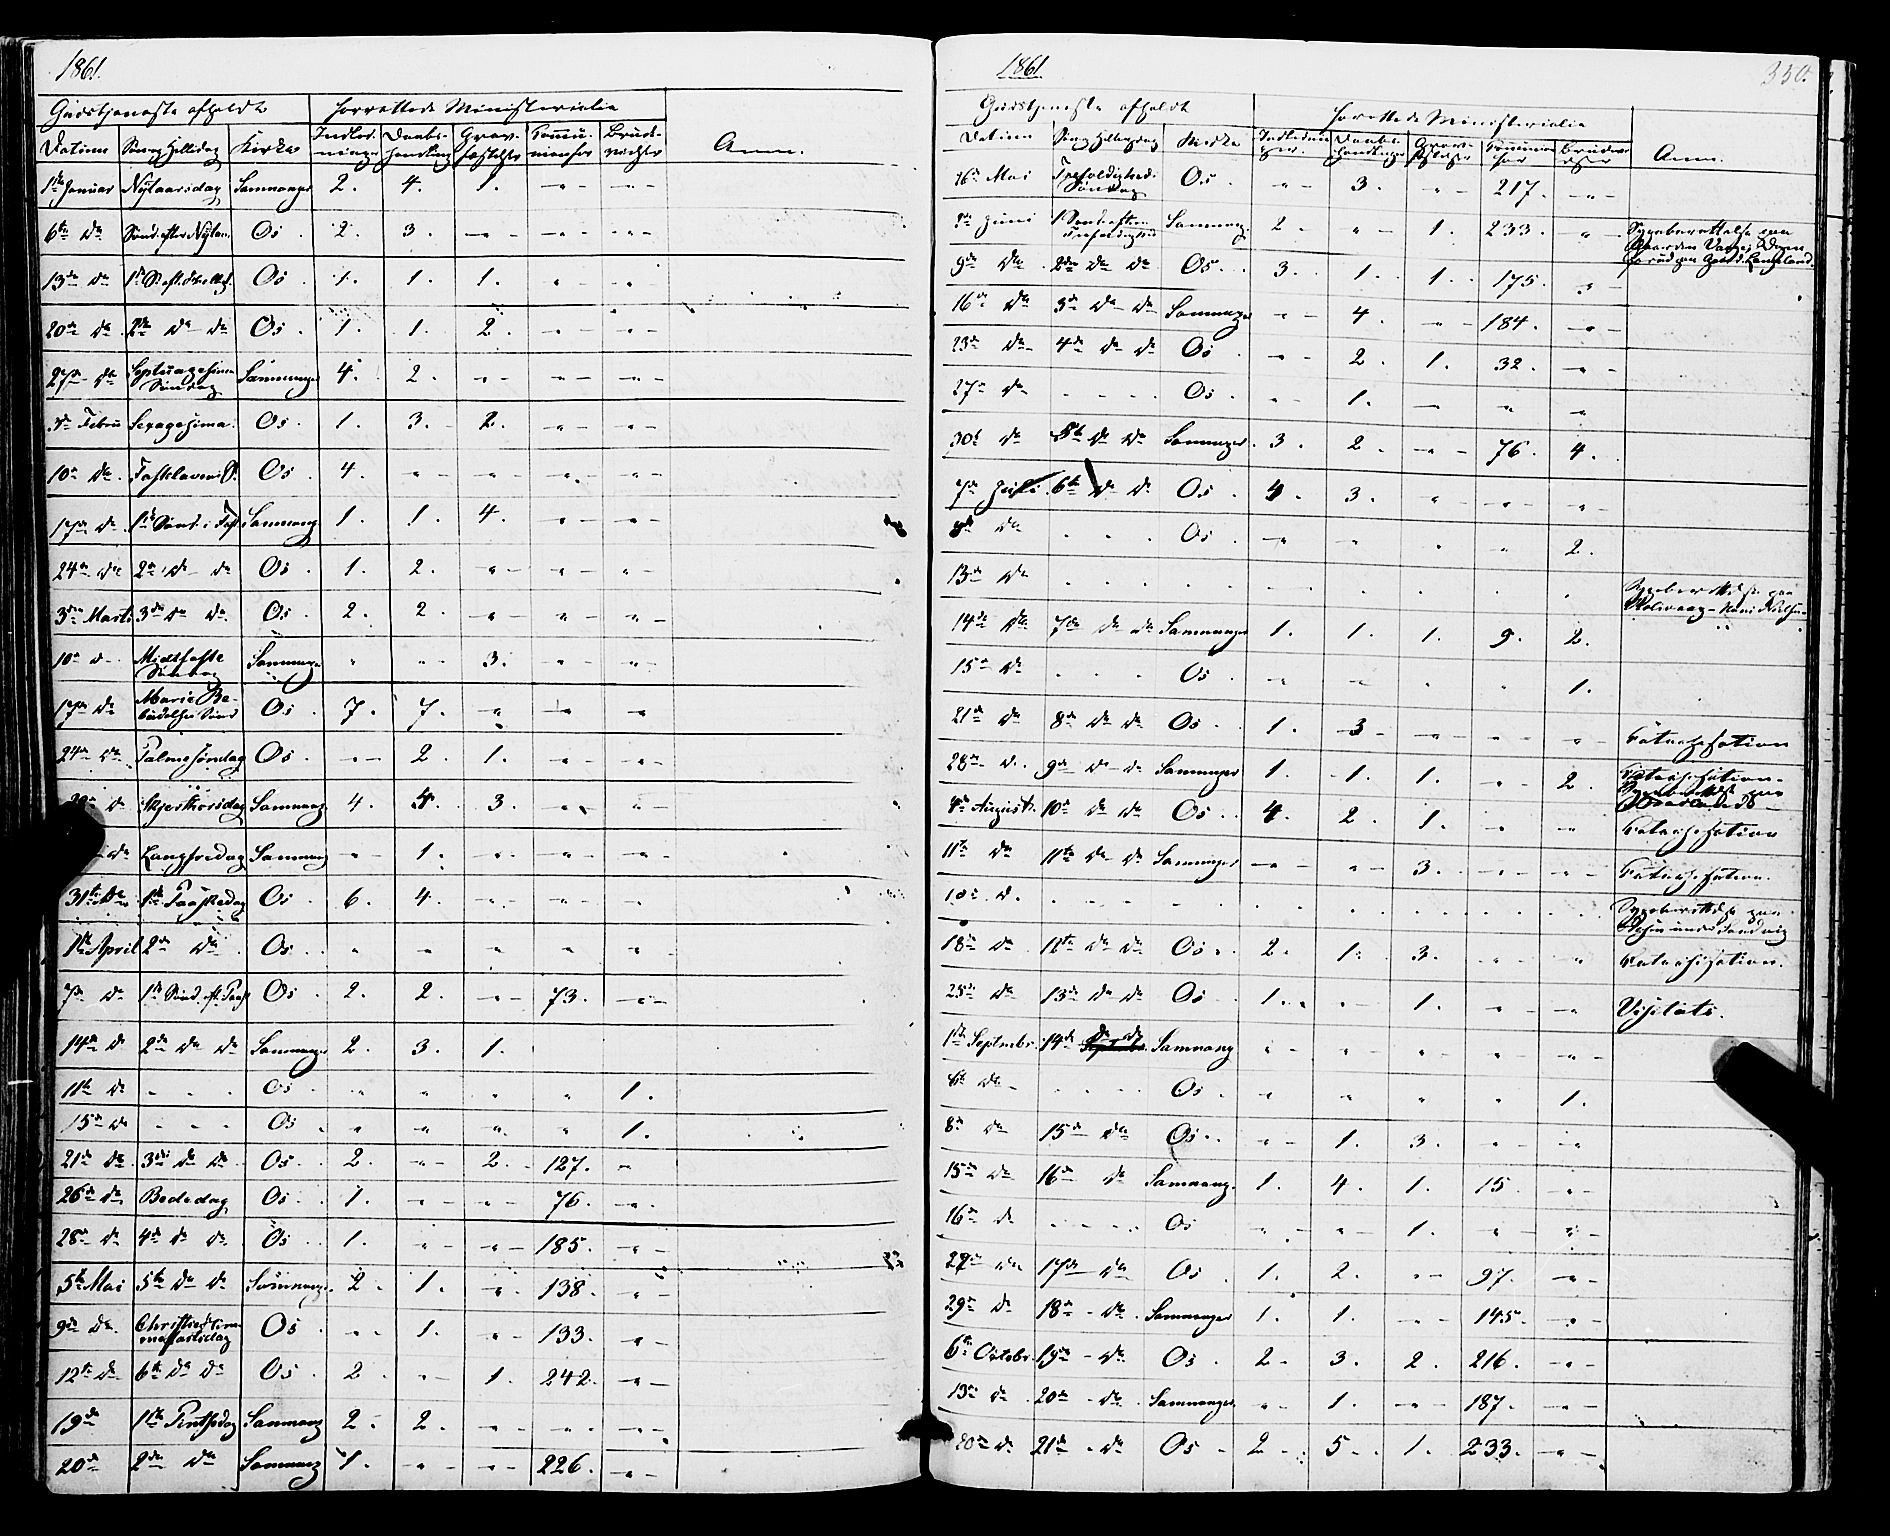 1861.
Gudstjeneste afholdt Forrettede Ministerialia
Datum Søn og Helligdag Kirke Indled-ninger Daabs-handling Grav-fæstelse Commu-nicanter Brude-vielser Anm.
1ste Januar Nytaarsdag Samnanger 2. 4. 1. " "
6te do Sønd. efter Nytaar Os 2. 3. " " "
13de do 1ste S. eft. Os 1. 1. 1. " "
20de do 2den do do Os 1. 1. 2. " "
27de do Septuagesima Søndag Samnanger 4. 2. " " "
3de Febru Sexagesima Os 1. 3. 2. " "
10de do Fastelavns S. Os 4. " " " "
17de do 1ste Sønd. i Fast Samnang 1. 1. 4. " "
24de do 2den do do Os 1. 2. " " "
3die Marts 3die do do Os 2. 2. " " "
10de do Midtfaste Søndag Samnanger " " 3. " "
17de do Mariæ Be-budelses Sønd Os 7. 7. " " "
24de do Palmesøndag Os " 2. 1. " "
do Skjertorsdag Samnang 4. 4. 3. " "
do Langfredag Samnang " 1. " " "
31te do 1ste Paaskedag Os 6. 4. " " "
1ste April 2den do Os " " " " "
7de do 1ste Sønd. eft. Paask Os 2. 2. " 73. "
14de do 2den do do Samnanger 2. 3. 1.
11te do - - - Os " " " " 1.
15de do - - - Os " " " " 1.
21de do 3die do do Os 2. " 2. 127. "
26de do Bededag Os 1. " " 76. "
28de do 4de do do Os 1. " " 185. "
5te Mai 5te do do Samnanger 2. 1. " 138. "
9de do Christi Him-melfartsdag Os " 1. " 133. "
12te do 6te do do Os 2 " 1. 242. "
19de 1ste Pintsedag Samnang 2. 2. " " "
20de 2den do Samnang 1. " " 226. "
1861 350.
Gudstjeneste afholdt Forrettede Ministerialia
Datum Søn og Helligdag Kirke Indlednin-ger Daabs-handlinger Grav-fæstelser Communi-canter Brudevi-elser Anm.
26de Mai Trefoldigheds Søndag Os " 3. " 217. "
2den Juni 1ste Sønd. efter Trefoldighed Samnang. 2 " 1. 233. " Sygeberettelse paa
9de do 2den do do Os 3. 1. 1. 175. "
16de do 3die do do Samnanger " 4. " 184. "
23de do 4de do do Os " 2. 1. 32. "
27de do - - - - Os " 1. " " "
30te do 5te do do Samnanger 3. 2. " 76. 4.
7de Juli 6te do do Os 4. 3. " " "
8de do - - - Os " " " " 2.
13de do Sygeberettelse paa
14de do 7de do do Samnanger 1. 1. 1. 9. 2.
15de do - - - Os " " " " 1.
21de do 8de do do Os 1. 3 " " " Catechesation
28de do 9de do do Samnanger 1. 1. 1. " 2. Catechesation
4de August 10de do do Os 4. 2. 1. " " Catechesation
11te do 11te do do Samnanger " " 3. " " Catechesation.
do Sygeberettelse paa
18de do 12te do do Os 2. 1. 3. " " Catechesation.
25de do 13de do do Os 1. " 1. " " Visitats.
1ste Septmbr. 14de do do Samnang " " " " "
6te do - - - - Os " " " " 1.
8de do 15de do Os " 1. 3. " "
15de do 16de do Samnang. 1. 4. 1. 15. "
16de do - - - - Os " " 1. " "
22de do 17de do Os 1. 2. " 97. "
29de do 18de do Samnanger 1. 1. " 145. "
6te Octobr. 19de do Os 2. 3. 2. 216. "
13de do 20de do Samnanger " 1. " 187. "
20de do 21de do Os 2. 5. 1. 233. "